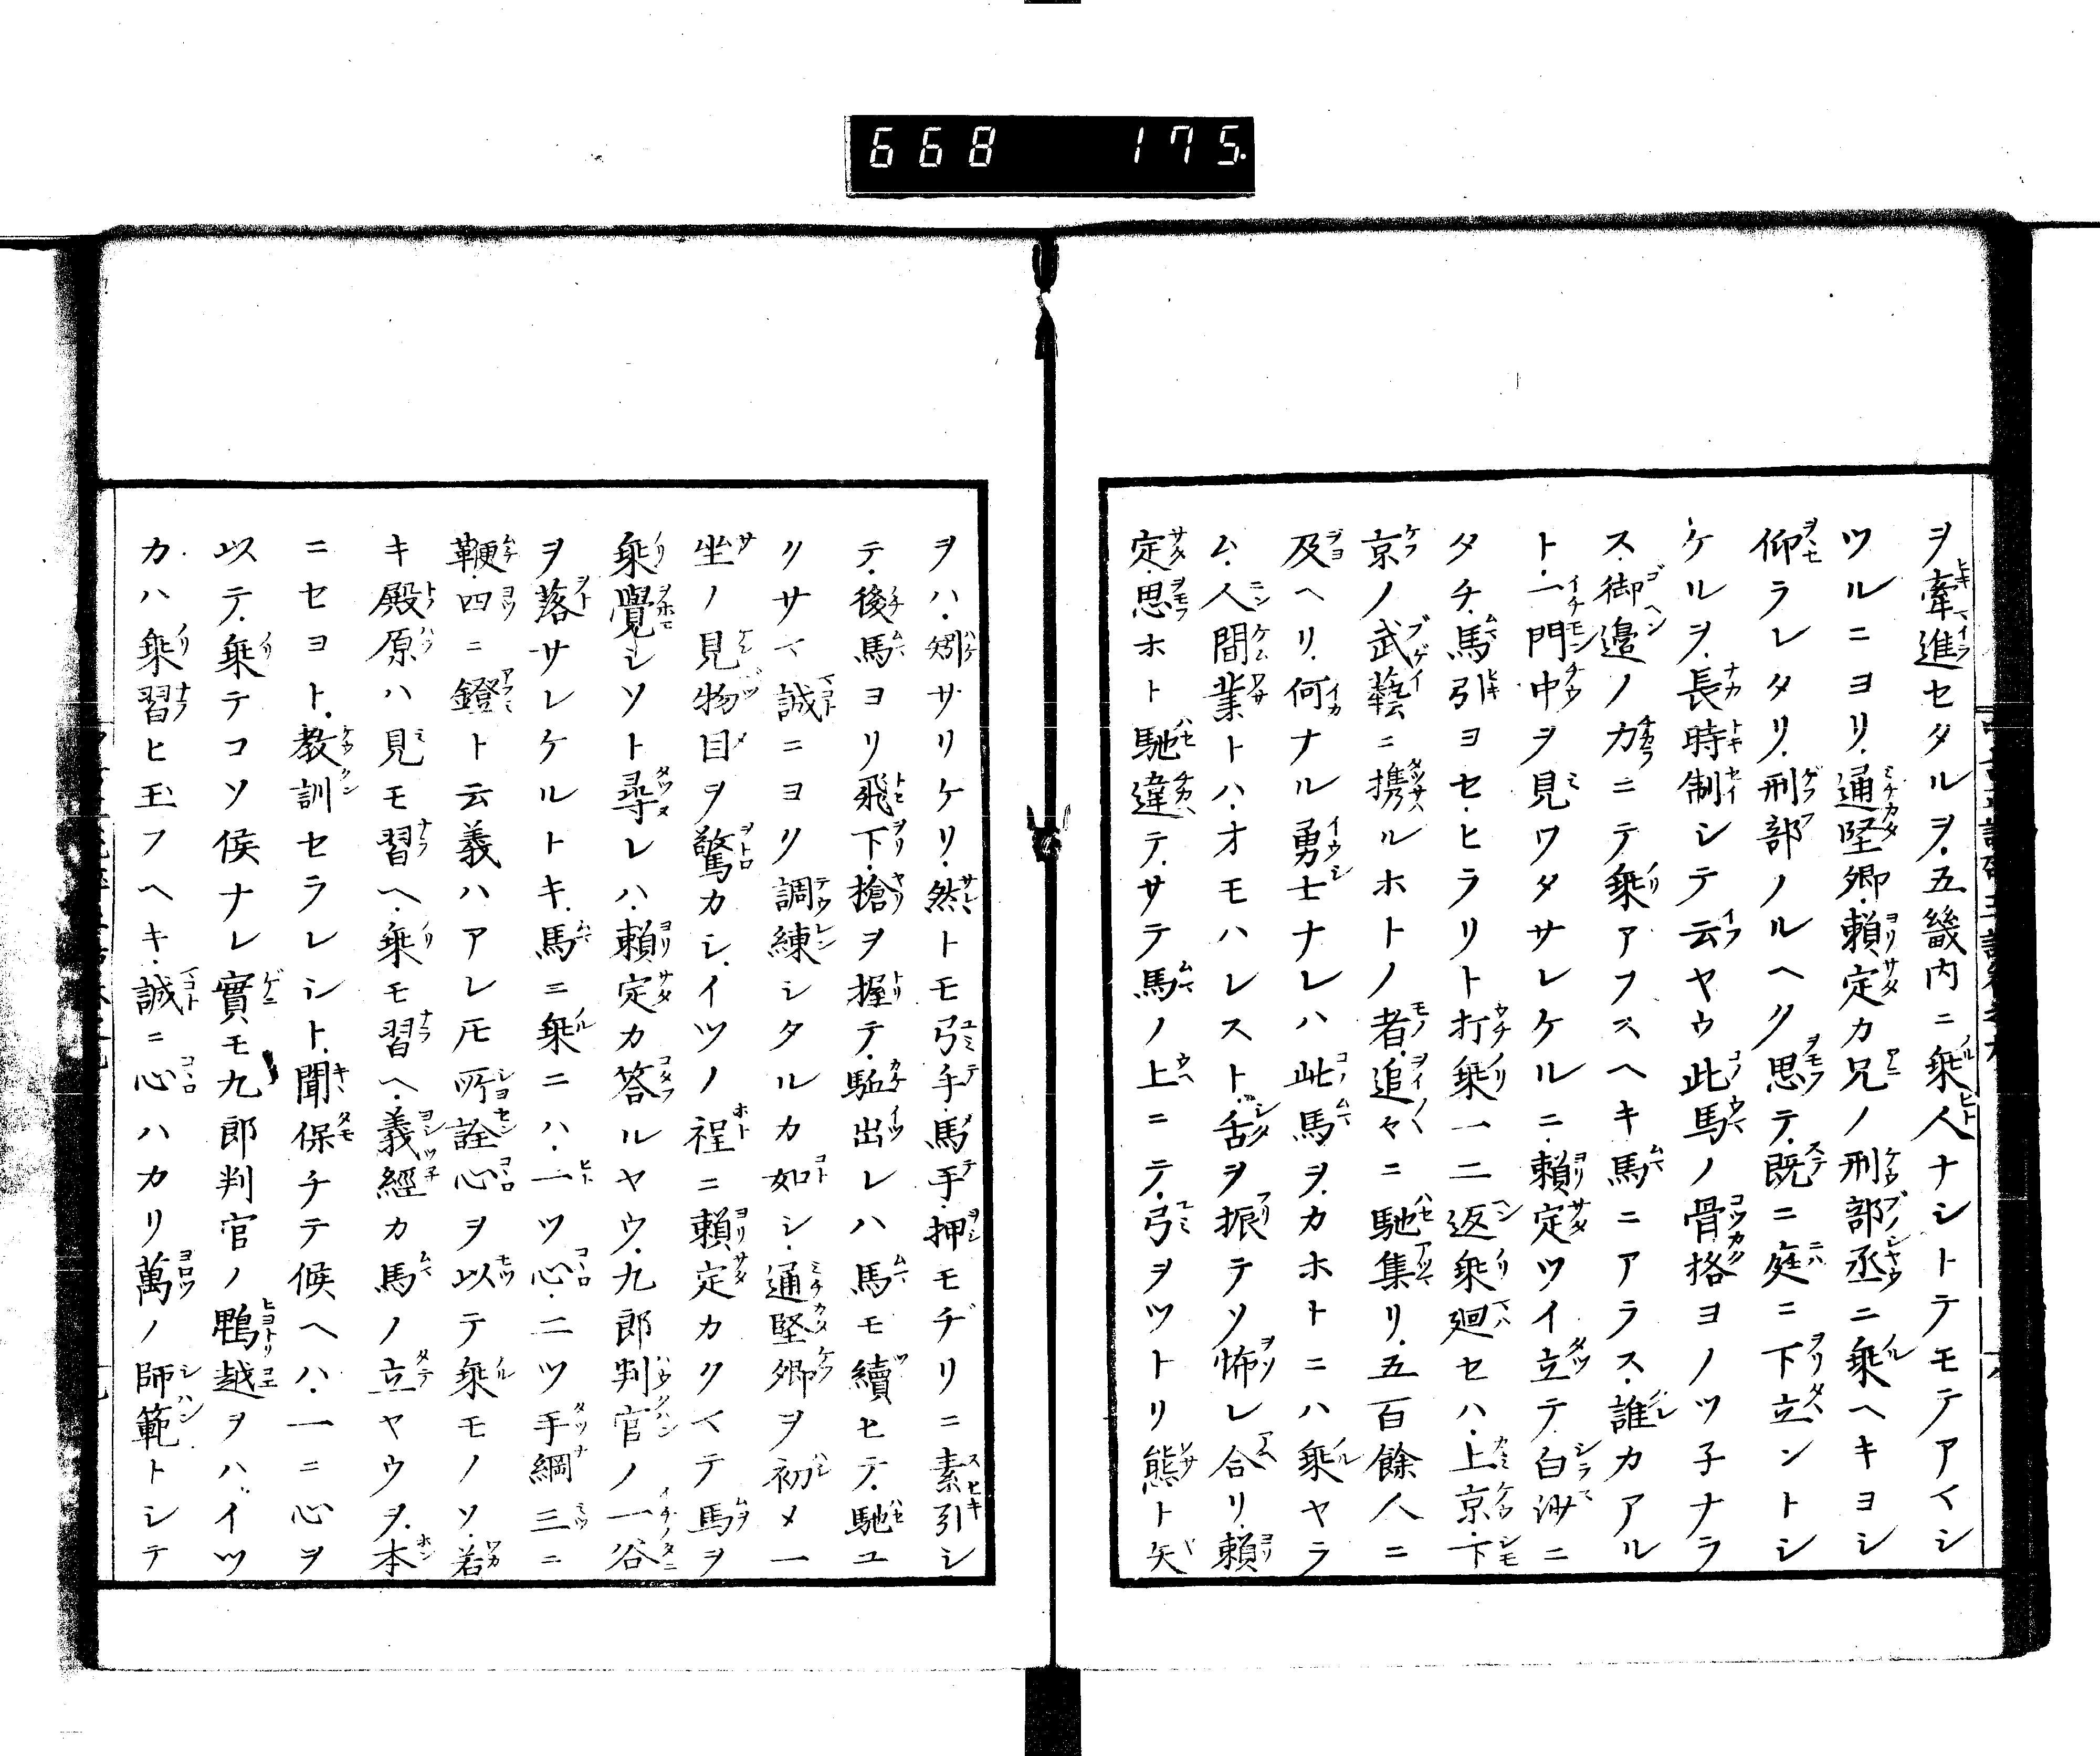 668 175
ヲ牽進セタルヲ五畿内ニ乗人ナシトテモテアイシ
ツルニヨリ通堅卿頼定カ兄ノ刑部丞ニ乗ヘキヨシ
仰ラレタリ刑部ノルヘク思テ既ニ庭ニ下立ントシ
ケルヲ長時制シテ云ヤウ此馬ノ骨格ヨノツ子ナラ
ス御邉ノ力ニテ乗アフスヘキ馬ニアラス誰カアル
ト一門中ヲ見ワタサレケルニ頼定ツイ立テ白沙ニ
タチ馬引ヨセヒラリト打乗一二返乗廻セハ上京下
京ノ武藝ニ携ルホトノ者追々ニ馳集リ五百餘人ニ
及ヘリ何ナル勇士ナレハ此馬ヲカホトニハ乗ヤラ
ム人間業トハオモハレスト舌ヲ振テソ怖レ合リ頼
定思ホト馳違テサテ馬ノ上ニテ弓ヲツトリ態ト矢
ヲハ矧サリケリ然トモ弓手馬手押モヂリニ素引シ
テ後馬ヨリ飛下槍ヲ握テ駈出レハ馬モ續ヒテ馳ユ
リサマ誠ニヨリ調練シタルカ如シ通堅卿ヲ初メ一
坐ノ見物目ヲ驚カシイツノ程ニ頼定カクマテ馬ヲ
乗覺シソト尋レハ頼定カ答ルヤウ九郎判官ノ一谷
ヲ落サレケルトキ馬ニ乗ニハ一ツ心二ツ手綱三ニ
鞭四ニ鐙ト云義ハアレ𪜈所詮心ヲ以テ乗モノソ若
キ殿原ハ見モ習ヘ乗モ習ヘ義經カ馬ノ立ヤウヲ本
ニセヨト教訓セラレシト聞保チテ候ヘハ一ニ心ヲ
以テ乗テコソ候ナレ實モ九郎判官ノ鵯越ヲハイツ
カハ乗習ヒ玉フヘキ誠ニ心ハカリ萬ノ師範トシテ